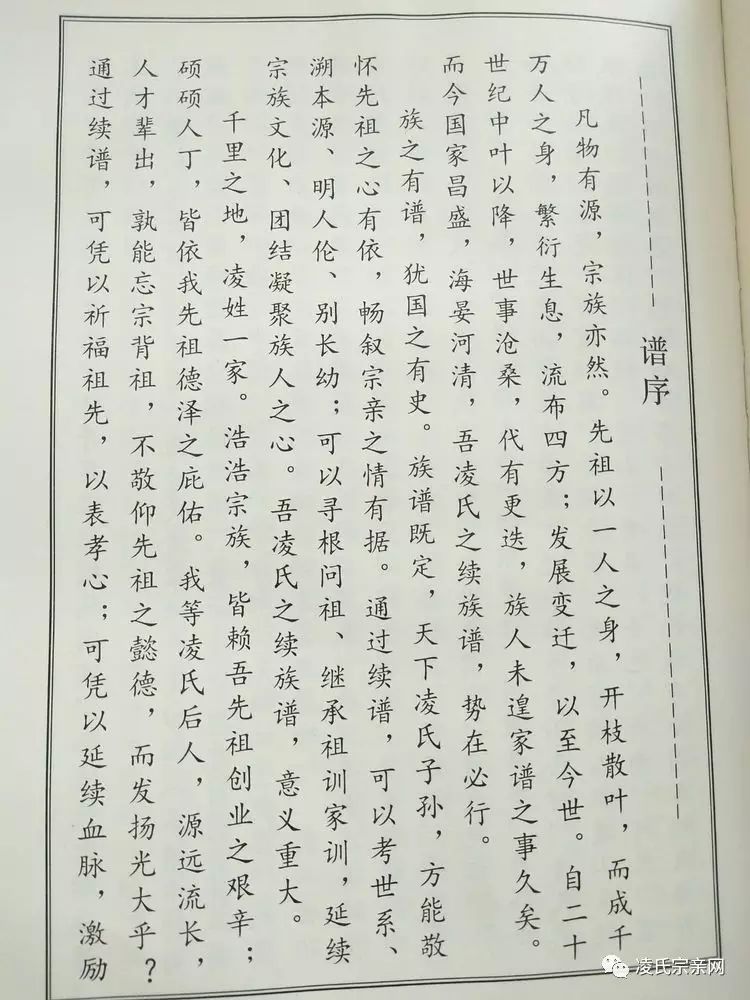 谱序
凡物有源，宗族亦然。先祖以一人之身，开枝散叶，而成千
万人之身，繁衍生息，流布四方；发展变迁，以至今世。自二十
世纪中叶以降，世事沧桑，代有更迭，族人未遑家谱之事久矣。
而今国家昌盛，海晏河清，吾凌氏之续族谱，势在必行。
族之有谱，犹国之有史。族谱既定，天下凌氏子孙，方能敬
怀先祖之心有依，畅叙宗亲之情有据。通过续谱，可以考世系、
溯本源、明人伦、别长幼；可以寻根问祖、继承祖训家训，延续
宗族文化、团结凝聚族人之心。吾凌氏之续族谱，意义重大。
千里之地，凌姓一家。浩浩宗族，皆赖吾先祖创业之艰辛；
硕硕人丁，皆依我先祖德泽之庇佑。我等凌氏后人，源远流长，
人才辈出，孰能忘宗背祖，不敬仰先祖之懿德，而发扬光大乎？
通过续谱，可凭以祈福祖先，以表孝心；可凭以延续血脉，激励
凌氏宗亲网